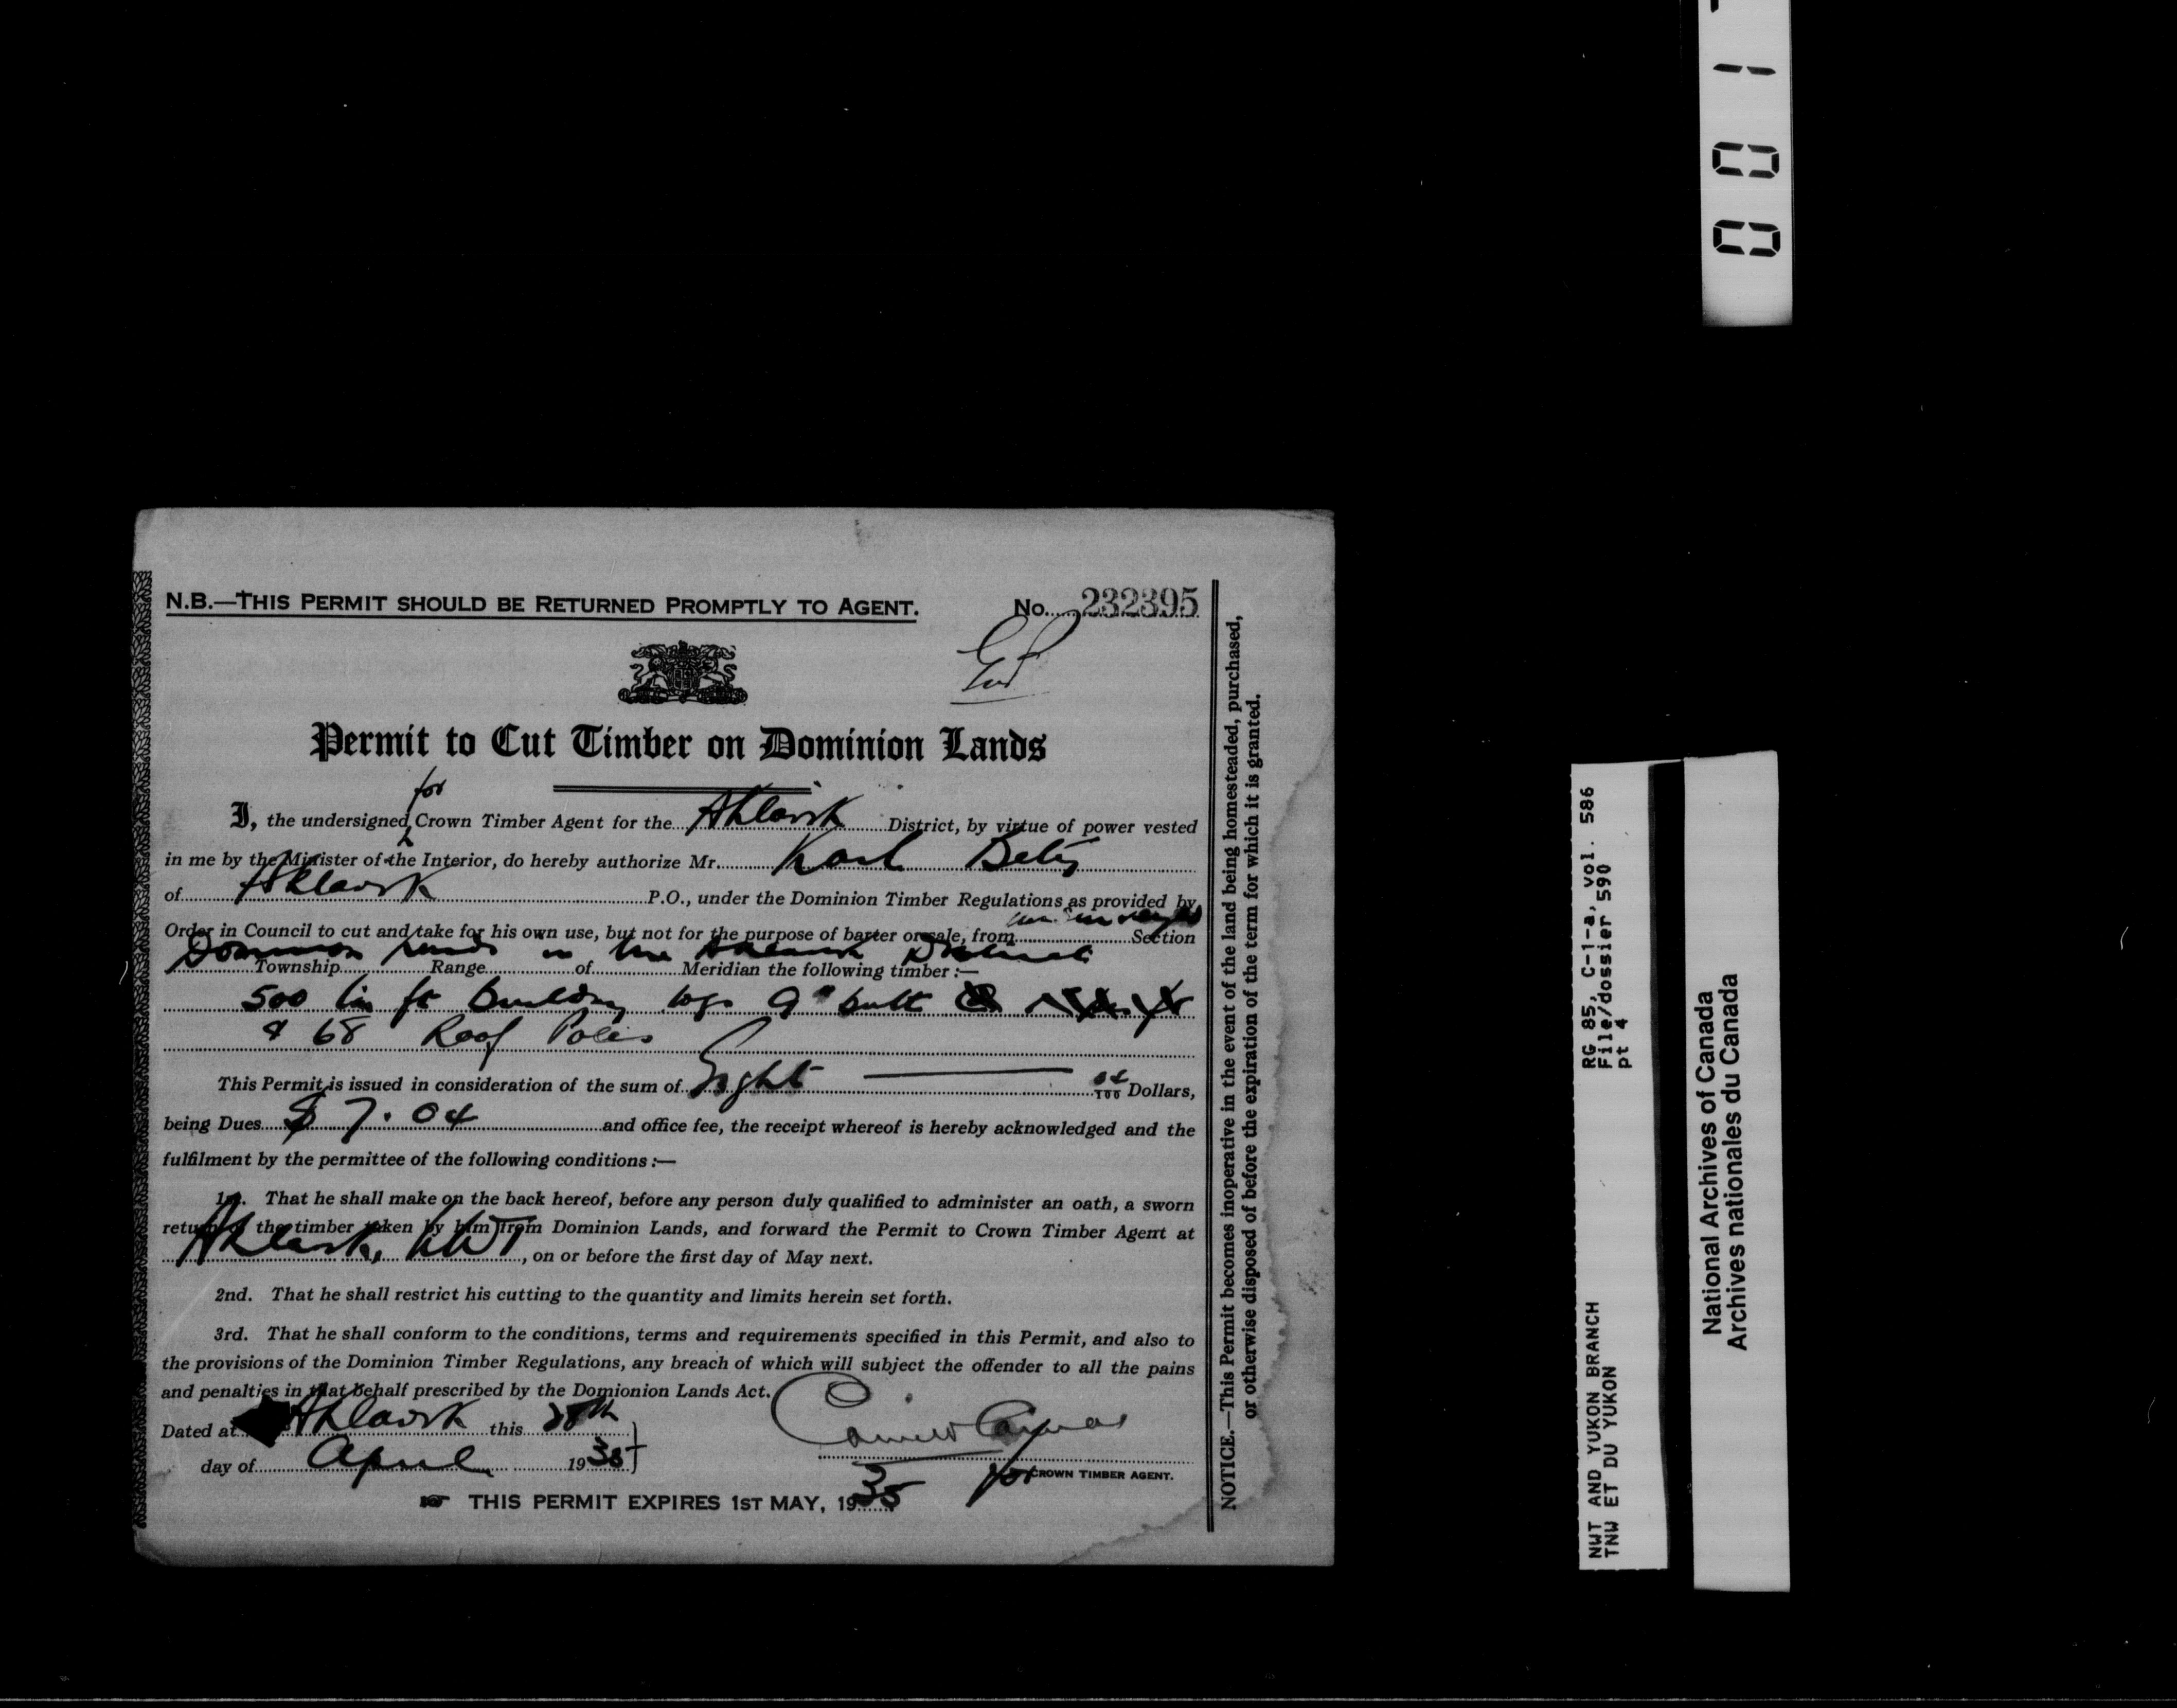 N.B.—THIS PERMIT SHOULD BE RETURNED PROMPTLY TO AGENT. No. 232395
Permit to Cut Timber on Dominion Lands
for
I, the undersigned, Crown Timber Agent for the Aklavik District, by virtue of power vested
in me by the Minister of the Interior, do hereby authorize Mr. Karl
of Aklavik P.O., under the Dominion Timber Regulations as provided by
Order in Council to cut and take for his own use, but not for the purpose of barter or sale, from Section
Dominion Lands in the Aklavik District
Township Range of Meridian the following timber :—
500 lin ft building logs 9" butt
& 68 Roof Poles
This Permit is issued in consideration of the sum of Eight 04/100 Dollars,
being Dues $ 7.04 and office fee, the receipt whereof is hereby acknowledged and the
fulfilment by the permittee of the following conditions :—
1st. That he shall make on the back hereof, before any person duly qualified to administer an oath, a sworn
return of the timber taken by him from Dominion Lands, and forward the Permit to Crown Timber Agent at
Aklavik, NWT, on or before the first day of May next.
2nd. That he shall restrict his cutting to the quantity and limits herein set forth.
3rd. That he shall conform to the conditions, terms and requirements specified in this Permit, and also to
the provisions of the Dominion Timber Regulations, any breach of which will subject the offender to all the pains
and penalties in that behalf prescribed by the Domionion Lands Act.
Dated at Aklavik this
day of April 1935
for CROWN TIMBER AGENT.
THIS PERMIT EXPIRES 1ST MAY, 1935
NOTICE.—This Permit becomes inoperative in the event of the land being homesteaded, purchased,
or otherwise disposed of before the expiration of the term for which it is granted.
RG 85, C-1-a, vol. 586
File/dossier 590
pt 4
NWT AND YUKON BRANCH
TNW ET DU YUKON
National Archives of Canada
Archives nationales du Canada
0 0 1